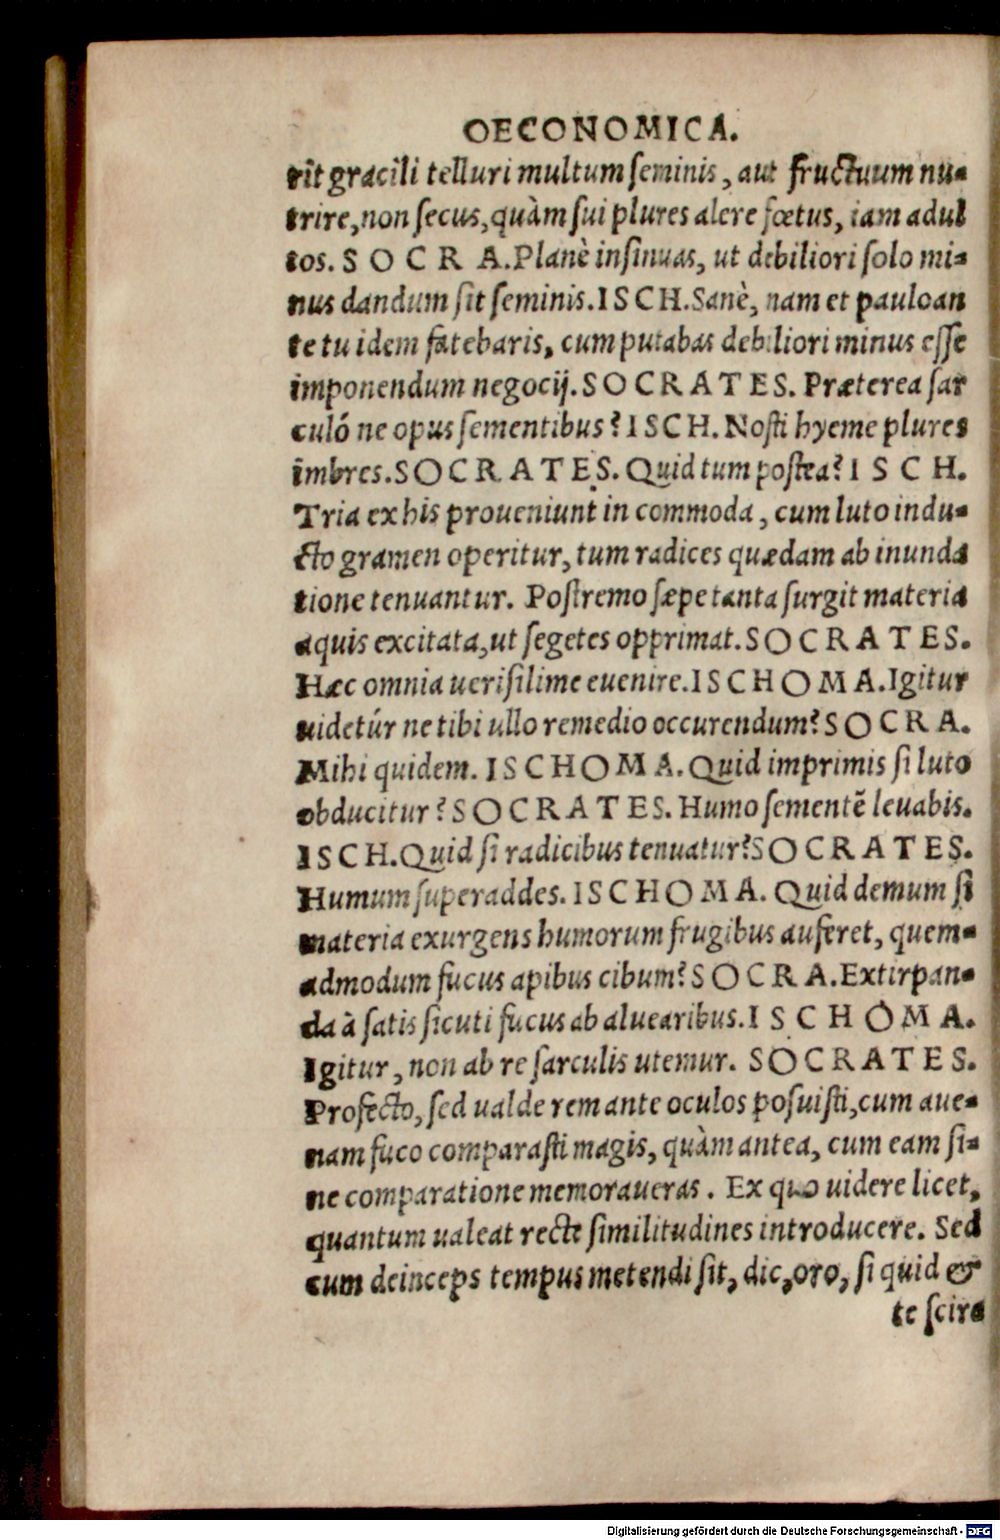 OECONOMICA.
rit gracili telluri multum ſeminis, aut fructuum nu-
trire, non ſecus, quàm ſui plures alere fœtus, iam adul
tos. SOCRA. Planè inſinuas, ut debiliori ſolo mi-
nus dandum ſit ſeminis. ISCH. Sanè, nam et pauloan
te tu idem fatebaris, cum putabas debiliori minus eſſe
imponendum negocij. SOCRATES. Præterea ſar
culó ne opus ſementibus? ISCH. Noſti hyeme plures
imbres. SOCRATES. Quid tum poſtea? ISCH.
Tria ex his proueniunt in commoda, cum luto indu-
cto gramen operitur, tum radices quædam ab inunda
tione tenuantur. Poſtremo ſæpe tanta ſurgit materia
aquis excitata, ut ſegetes opprimat. SOCRATES.
Hæc omnia ueriſilime euenire. ISCHOMA. Igitur
uidetúr ne tibi ullo remedio occurendum? SOCRA.
Mihi quidem. ISCHOMA. Quid imprimis ſi luto
obducitur? SOCRATES. Humo ſementē leuabis.
ISCH. Quid ſi radicibus tenuatur? SOCRATES.
Humum ſuperaddes. ISCHOMA. Quid demum ſi
materia exurgens humorum frugibus auferet, quem-
admodum fucus apibus cibum? SOCRA. Extirpan-
da à ſatis ſicuti fucus ab aluearibus. ISCHOMA.
Igitur, non ab re ſarculis utemur. SOCRATES.
Profecto, ſed ualde rem ante oculos poſuiſti, cum aue-
nam fuco comparaſti magis, quàm antea, cum eam ſi-
ne comparatione memoraueras. Ex quo uidere licet,
quantum ualeat recte ſimilitudines introducere. Sed
cum deinceps tempus metendi ſit, dic, oro, ſi quid &
te ſcire
Digitalisierung gefördert durch die Deutsche Forschungsgemeinschaft - DFG